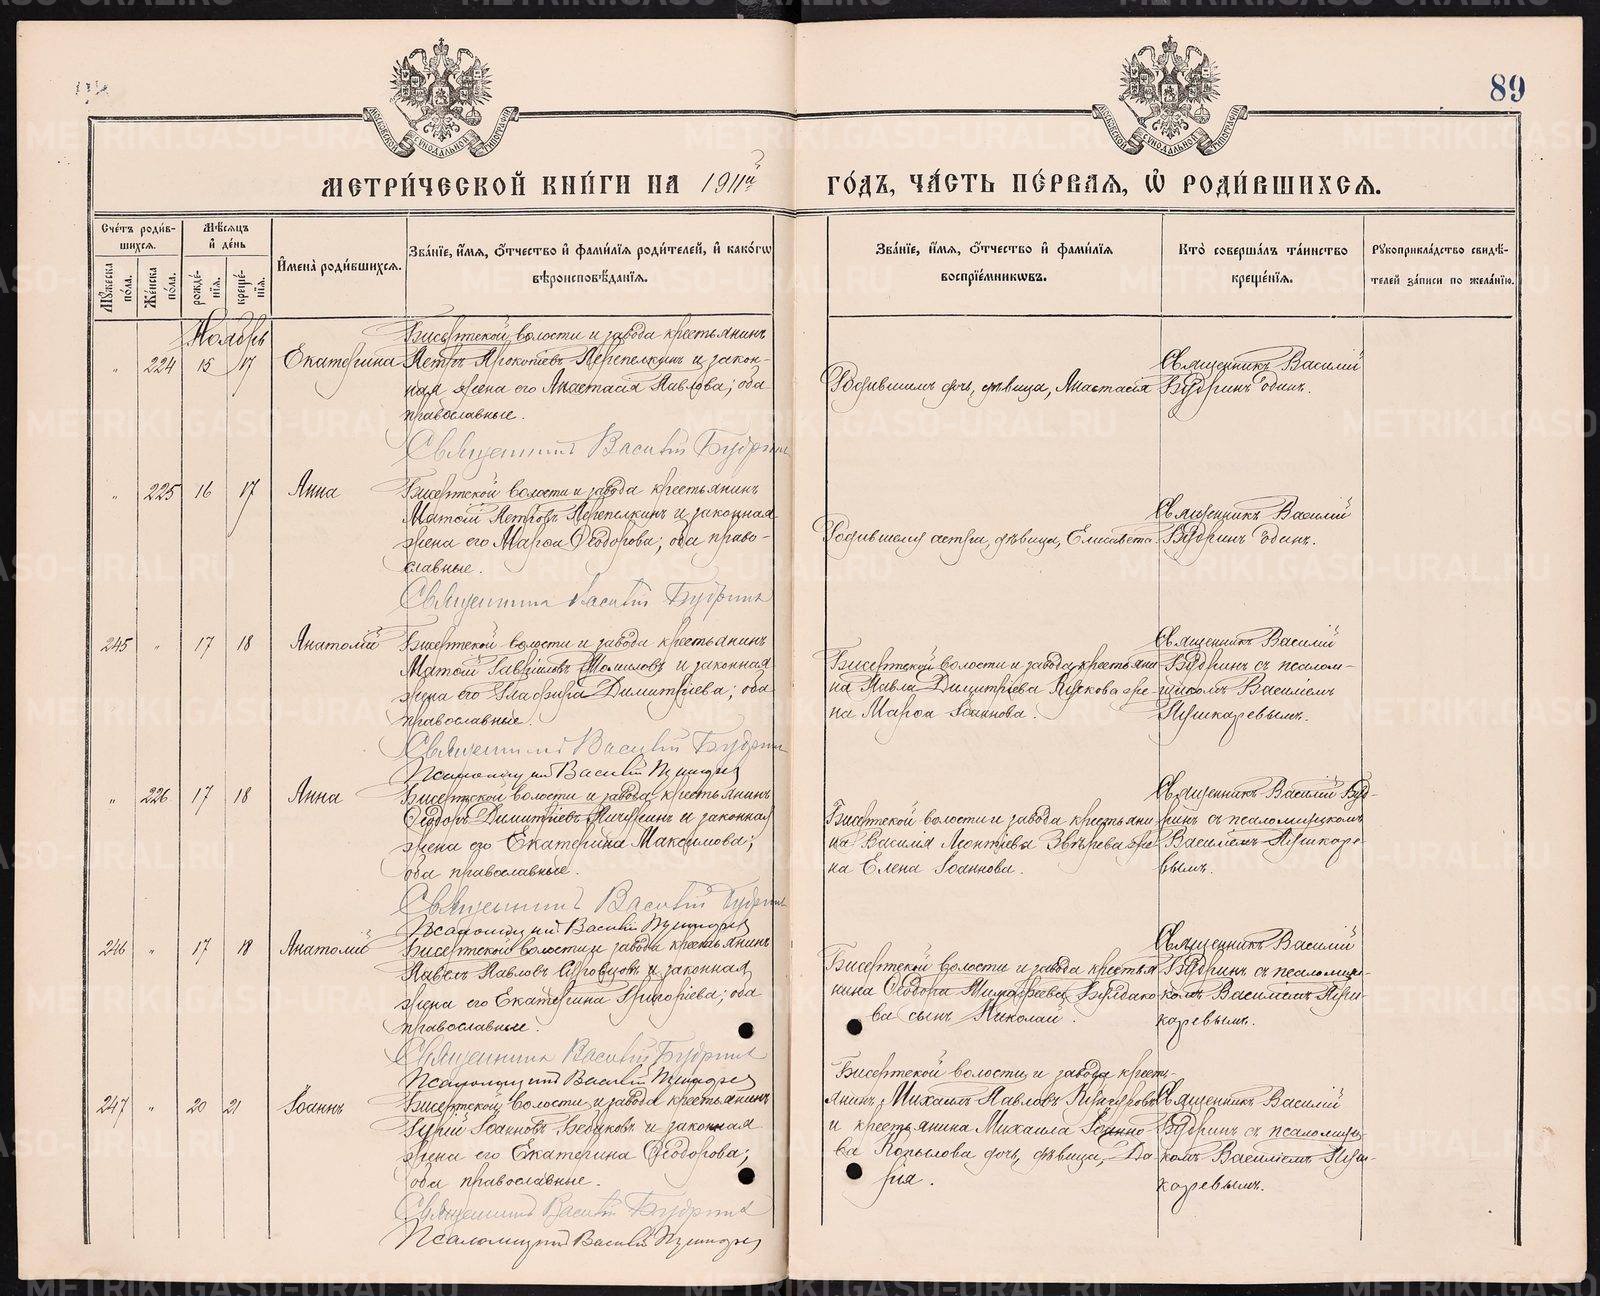 89
МЕТРИ́ЧЕСКОЙ КНИ́ГИ НА 1911й ГО́ДЪ, ЧА́СТЬ ПЕ́РВАѦ, Ѡ҆ РОДИ́ВШИХСѦ.
Сче́тъ роди́в-
шихсѧ.
Мꙋ́жеска по́ла.
Же́нска по́ла.
Мѣ́сѧцъ
и҆ де́нь
рожде́-
нїѧ.
креще́-
нїѧ.
И҆мена̀ роди́вшихсѧ.
Зва́нїе, и҆́мѧ, ѻ҆́тчество и҆ фами́лїѧ роди́телей, и҆ како́гѡ
вѣроисповѣ́данїѧ.
Зва́нїе, и҆́мѧ, ѻ҆́тчество и҆ фами́лїѧ
воспрїе́мникѡвъ.
Кто̀ соверша́лъ та́инство
креще́нїѧ.
Рꙋкоприкла́дство свидѣ́-
телей за́писи по жела́нїю.
Ноябрь
" 224 15 17 Екатерина
Бисертской волости и завода крестьянинъ
Петръ Прокопіевъ Перепелкинъ и закон-
ная жена его Анастасія Павлова; оба
православные.
Священникъ Василій Будринъ
Родившихъ дочь, дѣвица, Анастасія
Священникъ Василій
Будринъ одинъ.
" 225 16 17 Анна
Бисертской волости и завода крестьянинъ
Матѳій Петровъ Перепелкинъ и законная
жена его Марѳа Ѳеодорова; оба право-
славные.
Священникъ Василій Будринъ
Родившей сестра, дѣвица, Елисавета
Священникъ Василій
Будринъ одинъ.
245 " 17 18 Анатолій
Бисертской волости и завода крестьянинъ
Матѳій Гавріиловъ Томиловъ и законная
жена его Глафира Димитріева; оба
православные.
Священникъ Василій Будринъ
Псаломщикъ Василій Пушкарев
Бисертской волости и завода крестьяни-
на Павла Димитріева жe-
на Марѳа Іоаннова.
Священникъ Василій
Будринъ съ псалом-
щикомъ Василіемъ
Пушкаревымъ.
" 226 17 18 Анна
Бисертской волости и завода крестьянинъ
Ѳеодоръ Димитріевъ Пичугинъ и законная
жена его Екатерина Максимова;
оба православные.
Священникъ Василій Будринъ
Псаломщикъ Василій Пушкарев
Бисертской волости и завода крестьяни-
на Василія Леонтіева Звѣрева же-
на Елена Іоаннова.
Священникъ Василій Буд-
ринъ съ псаломщикомъ
Василіемъ Пушкаре-
вымъ.
246 " 17 18 Анатолій
Бисертской волости и завода крестьянинъ
Павелъ Павловъ и законная
жена его Екатерина Григоріева; оба
православные.
Священникъ Василій Будринъ
Псаломщикъ Василій Пушкарев
Бисертской волости и завода крестья-
нина Ѳеодора Тимоѳеева Булдако-
ва сынъ Николай.
Священникъ Василій
Будринъ съ псаломщи-
комъ Василіемъ Пуш-
каревымъ.
247 " 20 21 Іоаннъ
Бисертской волости и завода крестьянинъ
Гурій Іоанновъ и законная
жена его Екатерина Ѳеодорова;
оба православные.
Священникъ Василій Будринъ
Псаломщикъ Василій Пушкарев
Бисертской волости и завода кресть-
янинъ Михаилъ Павловъ
и крестьянина Михаила Іоанно-
ва Копылова дочь, дѣвица, Да-
рія.
Священникъ Василій
Будринъ съ псаломщи-
комъ Василіемъ Пуш-
каревымъ.
METRIKI.GASO-URAL.RU